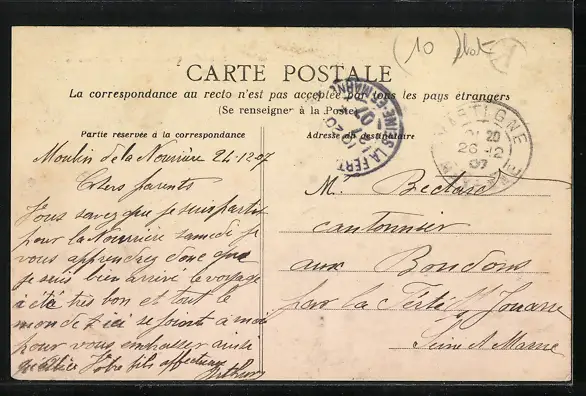 (10
CARTE POSTALE
La correspondance au recto n'est pas acceptée par tous les pays étrangers
(Se renseigner à la Poste)
Partie réservée à la correspondance
Adresse du destinataire
LA FERT
SEINE-ET-MARNE
07
20
26-12
07
Moulin de la Nourrière 24-12-07
Chers parents
Vous savez que je suis partit
pour la Nourrière samedi je
vous apprendrez donc que
je suis bien arrivé le voyage
a été très bon et tout le
monde d'ici se joint à moi
pour vous embrasser ainsi
Votre fils affectueux
Arthur
M.
cantonnier
aux Bondons
par la Ferté s/s Jouarre
Seine et Marne